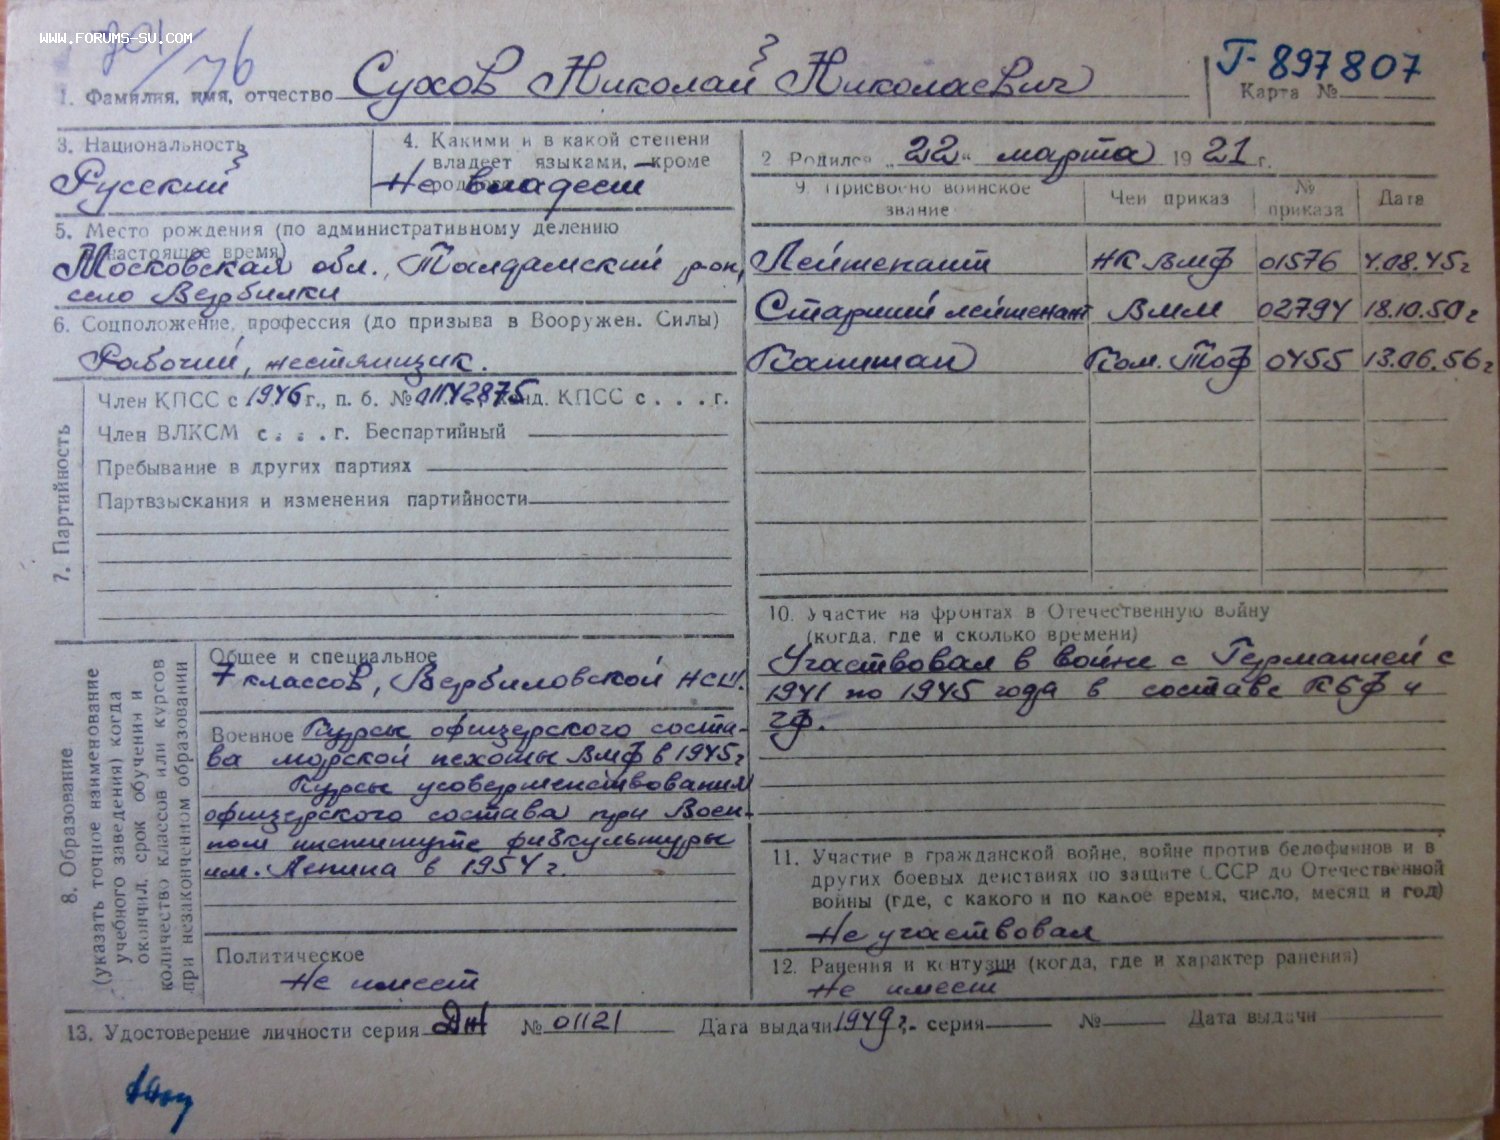 www.forums-su.com
1. Фамилия, имя, отчество Сухов Николай Николаевич
Г-897807
Карта №
3. Национальность
Русский
4. Какими и в какой степени
владеет языками, кроме
Не владеет
2. Родился „22“ марта 1921 г.
5. Место рождения (по административному делению
в настоящее время)
Московская обл., Талдомский р-он,
село Вербилки
6. Соцположение, профессия (до призыва в Вооружен. Силы)
Рабочий, жестянщик.
9. Присвоено воинское звание
Чей приказ
№ приказа
Дата
Лейтенант НК ВМФ 01576 4.08.45г
Старший лейтенант ВММ 02794 18.10.50г
Капитан Ком. ТОФ 0455 13.06.56г
7. Партийность
Член КПСС с 1946 г., п. б. № 01142875, канд. КПСС с . . . г.
Член ВЛКСМ с . . . г. Беспартийный
Пребывание в других партиях
Партвзыскания и изменения партийности
8. Образование
(указать точное наименование
учебного заведения) когда
окончил, срок обучения и
количество классов или курсов
при незаконченном образовании
Общее и специальное
7 классов, Вербиловской НСШ.
Военное Курсы офицерского соста-
ва морской пехоты ВМФ в 1945г
Курсы усовершенствования
офицерского состава при Воен-
ном институте физкультуры
им. Ленина в 1954 г.
Политическое
Не имеет
10. Участие на фронтах в Отечественную войну
(когда, где и сколько времени)
Участвовал в войне с Германией с
1941 по 1945 года в составе КБФ и
ЧФ.
11. Участие в гражданской войне, войне против белофиннов и в
других боевых действиях по защите СССР до Отечественной
войны (где, с какого и по какое время, число, месяц и год)
Не участвовал
12. Ранения и контузии (когда, где и характер ранения)
Не имеет
13. Удостоверение личности серия ДЖ № 01121 Дата выдачи 1949г. серия № Дата выдачи